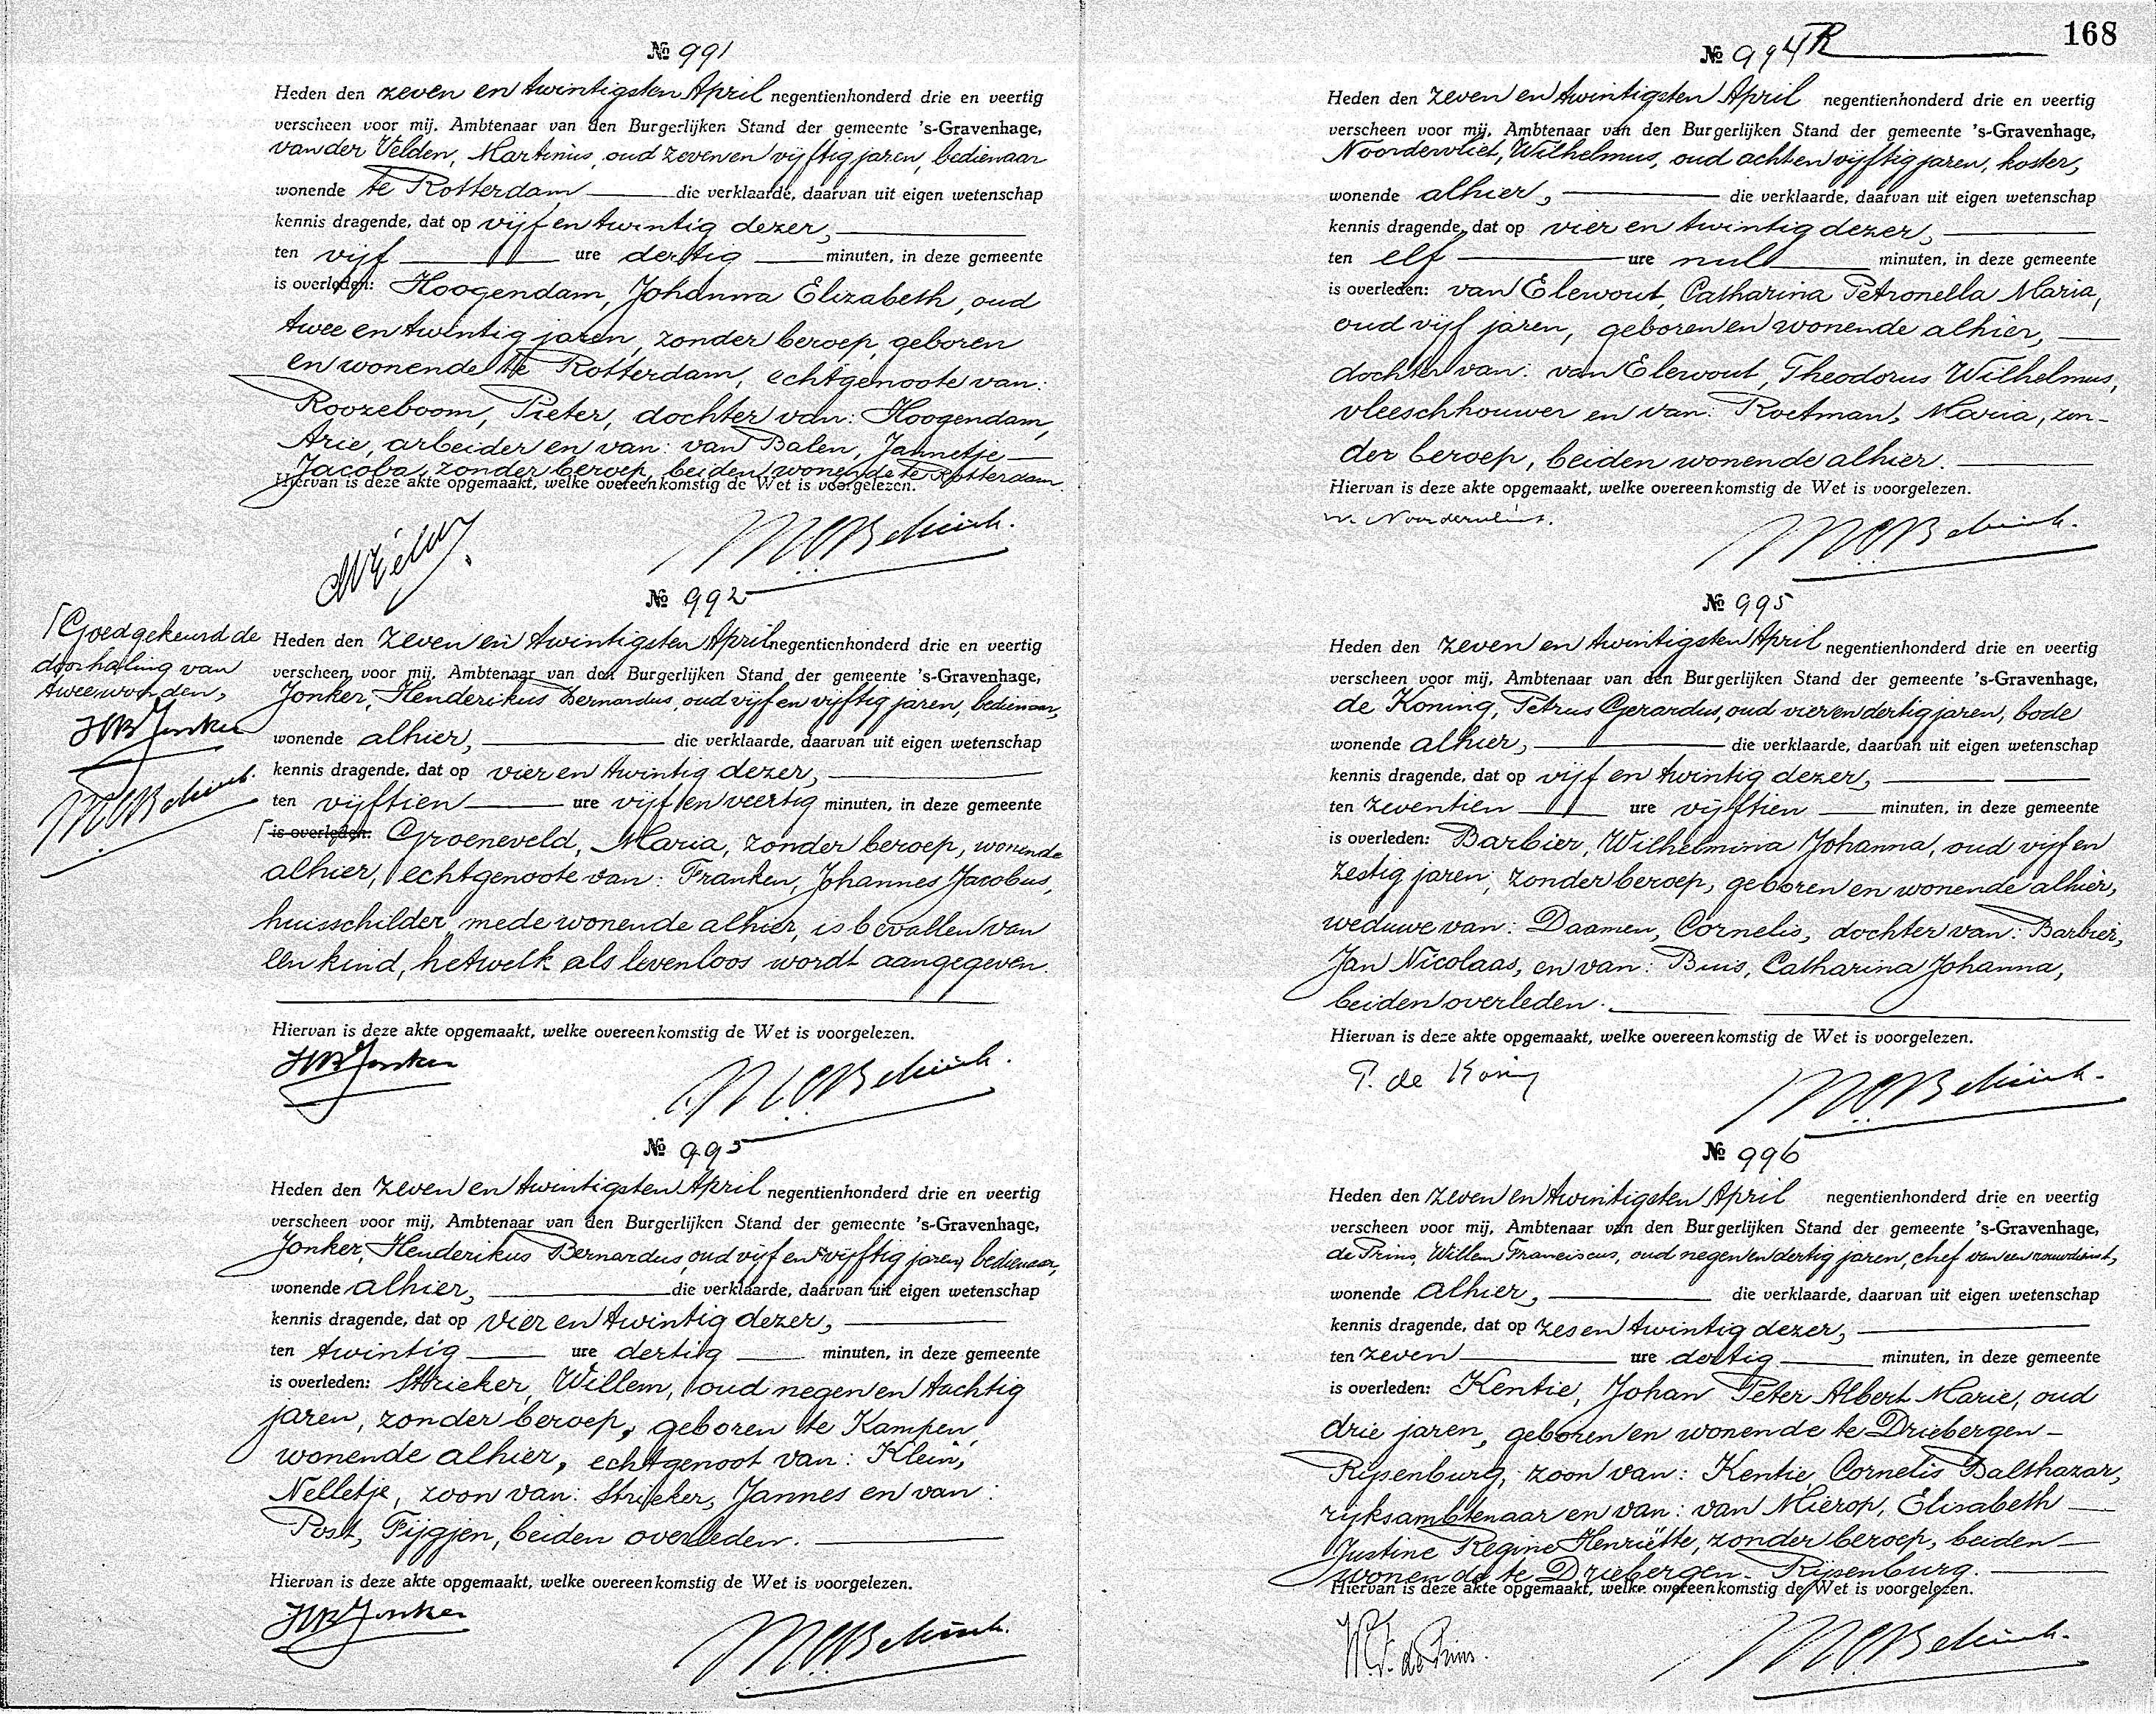 № 991
Heden den zeven en twintigsten April negentienhonderd drie en veertig
verscheen voor mij, Ambtenaar van den Burgerlijken Stand der gemeente 's-Gravenhage,
van der Velden, Martinus, oud zeven en vijftig jaren, bedienaar
wonende te Rotterdam die verklaarde, daarvan uit eigen wetenschap
kennis dragende, dat op vijf en twintig dezer,
ten vijf ure dertig minuten, in deze gemeente
is overleden: Hoogendam, Johanna Elizabeth, oud
twee en twintig jaren, zonder beroep, geboren
en wonende te Rotterdam, echtgenoote van:
Roozeboom, Pieter, dochter van: Hoogendam,
Arie, arbeider en van: van Balen, Jannetje
Jacoba, zonder beroep, beiden wonende te Rotterdam.
Hiervan is deze akte opgemaakt, welke overeenkomstig de Wet is voorgelezen.
№ 992
Goedgekeurd de
doorhaling van
twee woorden,
HB Jonker
Heden den zeven en twintigsten April negentienhonderd drie en veertig
verscheen voor mij, Ambtenaar van den Burgerlijken Stand der gemeente 's-Gravenhage,
Jonker, Henderikus Bernardus, oud vijf en vijftig jaren, bedienaar,
wonende alhier, die verklaarde, daarvan uit eigen wetenschap
kennis dragende, dat op vier en twintig dezer,
ten vijftien ure vijf en veertig minuten, in deze gemeente
is overleden: Groeneveld, Maria, zonder beroep, wonende
alhier, echtgenoote van: Franken, Johannes Jacobus,
huisschilder, mede wonende alhier, is bevallen van
een kind, hetwelk als levenloos wordt aangegeven.
Hiervan is deze akte opgemaakt, welke overeenkomstig de Wet is voorgelezen.
HB Jonker
№ 993
Heden den zeven en twintigsten April negentienhonderd drie en veertig
verscheen voor mij, Ambtenaar van den Burgerlijken Stand der gemeente 's-Gravenhage,
Jonker, Henderikus Bernardus, oud vijf en vijftig jaren, bedienaar,
wonende alhier, die verklaarde, daarvan uit eigen wetenschap
kennis dragende, dat op vier en twintig dezer,
ten twintig ure dertig minuten, in deze gemeente
is overleden: Strieker, Willem, oud negen en tachtig
jaren, zonder beroep, geboren te Kampen,
wonende alhier, echtgenoot van: Klein,
Nelletje, zoon van: Strieker, Jannes en van:
Post, Fijgjen, beiden overleden.
Hiervan is deze akte opgemaakt, welke overeenkomstig de Wet is voorgelezen.
HB Jonker
168
№ 994 R
Heden den zeven en twintigsten April negentienhonderd drie en veertig
verscheen voor mij, Ambtenaar van den Burgerlijken Stand der gemeente 's-Gravenhage,
Noordervliet, Wilhelmus, oud acht en vijftig jaren, koster,
wonende alhier, die verklaarde, daarvan uit eigen wetenschap
kennis dragende, dat op vier en twintig dezer,
ten elf ure nul minuten, in deze gemeente
is overleden: van Elewout, Catharina Petronella Maria,
oud vijf jaren, geboren en wonende alhier,
dochter van: van Elewout, Theodorus Wilhelmus,
vleeschhouwer en van: Roetman, Maria, zon-
der beroep, beiden wonende alhier.
Hiervan is deze akte opgemaakt, welke overeenkomstig de Wet is voorgelezen.
W. Noordervliet.
№ 995
Heden den zeven en twintigsten April negentienhonderd drie en veertig
verscheen voor mij, Ambtenaar van den Burgerlijken Stand der gemeente 's-Gravenhage,
de Koning, Petrus Gerardus, oud vier en dertig jaren, bode
wonende alhier, die verklaarde, daarvan uit eigen wetenschap
kennis dragende, dat op vijf en twintig dezer,
ten zeventien ure vijftien minuten, in deze gemeente
is overleden: Barbier, Wilhelmina Johanna, oud vijf en
zestig jaren, zonder beroep, geboren en wonende alhier,
weduwe van: Daamen, Cornelis, dochter van: Barbier,
Jan Nicolaas, en van: Buis, Catharina Johanna,
beiden overleden.
Hiervan is deze akte opgemaakt, welke overeenkomstig de Wet is voorgelezen.
P. de Koning
№ 996
Heden den zeven en twintigsten April negentienhonderd drie en veertig
verscheen voor mij, Ambtenaar van den Burgerlijken Stand der gemeente 's-Gravenhage,
de Prins, Willem Franciscus, oud negen en dertig jaren, chef van een rouwdienst,
wonende alhier, die verklaarde, daarvan uit eigen wetenschap
kennis dragende, dat op zes en twintig dezer,
ten zeven ure dertig minuten, in deze gemeente
is overleden: Kentie, Johan Peter Albert Marie, oud
drie jaren, geboren en wonende te Driebergen-
Rijsenburg, zoon van: Kentie, Cornelis Balthazar,
rijksambtenaar en van: van Mierop, Elisabeth
Justine Regine Henriëtte, zonder beroep, beiden
wonende te Driebergen-Rijsenburg.
Hiervan is deze akte opgemaakt, welke overeenkomstig de Wet is voorgelezen.
W.F. de Prins.